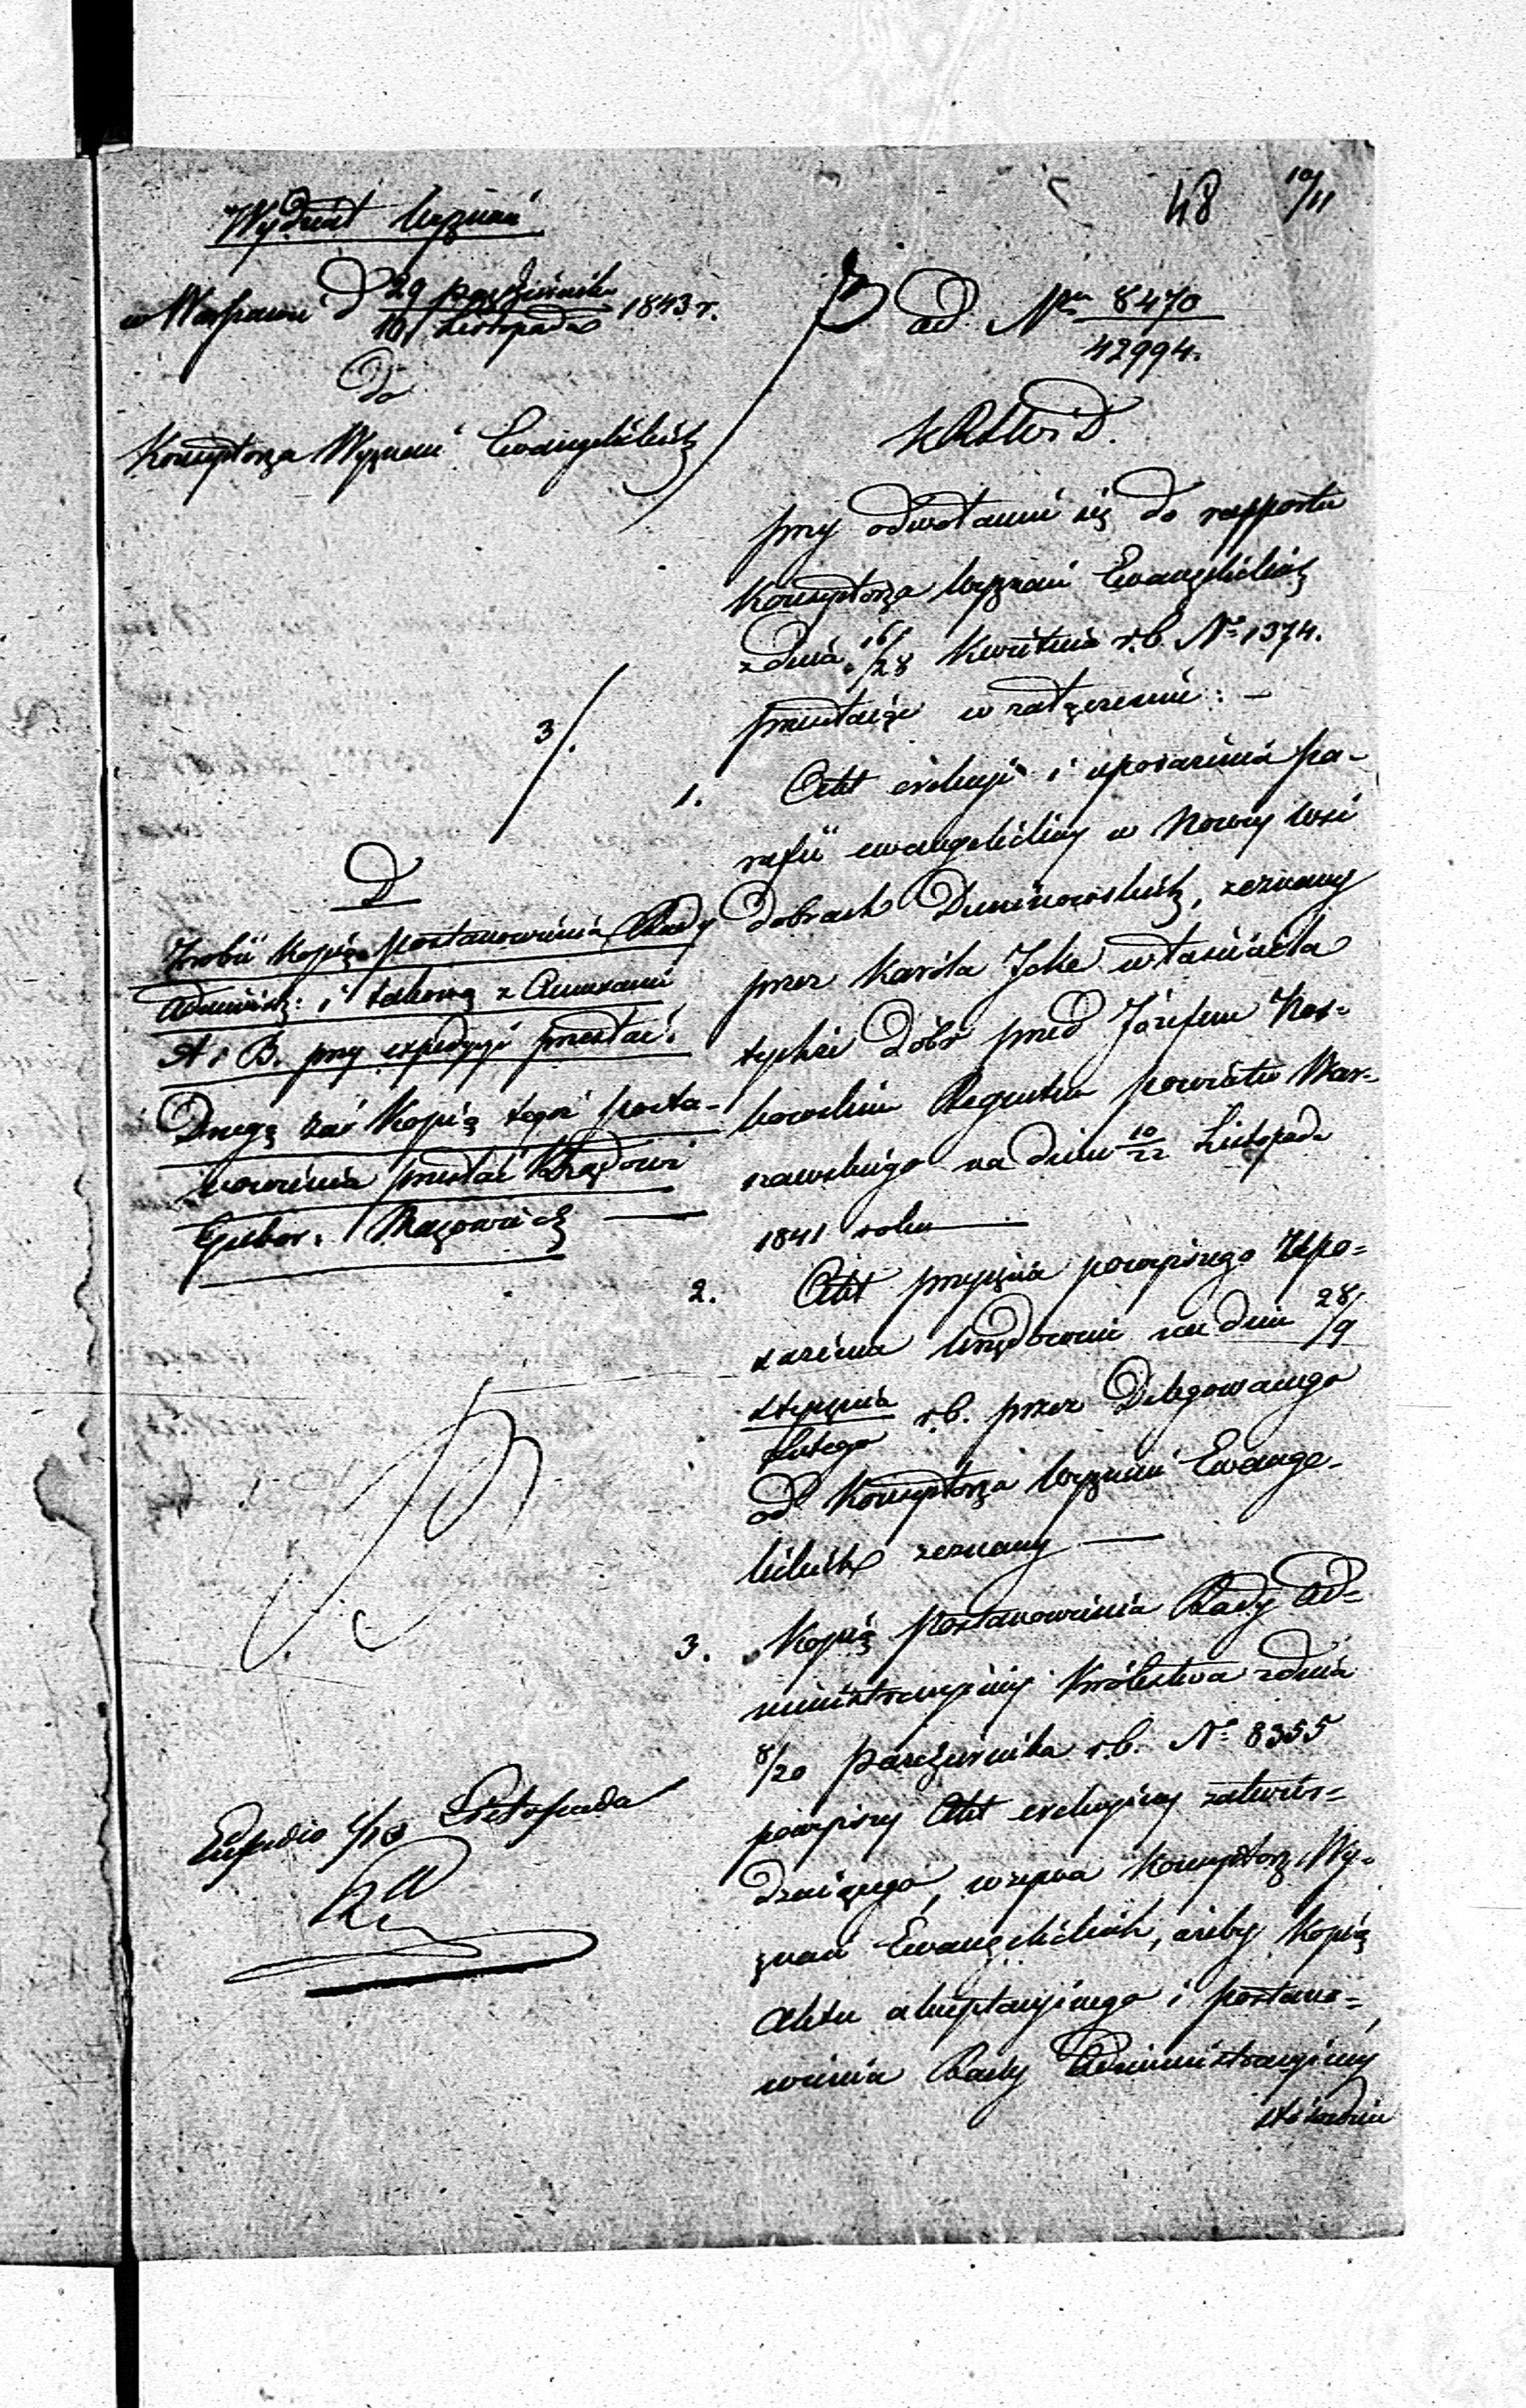 48 10/11
Wydział Wyznań
w Warszawie d 29 października / 10 Listopada 1843 r.
do
Konsystorza Wyznań Ewangelickich
ad Nru 8470 / 42994.
KRSWiD.
przy odwołaniu się do rapportu
Konsystorza Wyznań Ewangelickich
z dnia 16/28 Kwietnia r.b. No 1374.
przesyłając w załączeniu: —
3/.
1. Akt erekcyi i uposażenia pa-
rafii ewangelickiey w Nowey Wsi
dobrach Duninowskich, zeznany
przez Karola Jcke właściciela
tychże Dóbr przed Józefem
Regentem powiatu War-
szawskiego na dniu 10/22 Listopada
1841 roku —
2. Akt przyjęcia powyższego Upo-
sażenia Urzędownie na dniu 28/9
stycznia / Lutego r.b. przez Delegowanego
od Konsystorza Wyznań Ewange-
lickich zeznany —
3. Kopią postanowienia Rady Ad-
ministracyjnej Królestwa z dnia
8/20 Października r.b. No 8355
powyższy Akt erekcyjny zatwier-
dzającego, wzywa Konsystorz Wy-
znań Ewangelickich, ażeby Kopią
Aktu akceptacyjnego i postano-
wienia Rady Administracyjney
stosownie
D
Zrobić kopią postanowienia Rady
Administ: i takową z Annexami
A i B. przy expedycyi przesłać.
Drugą zaś Kopią tegoż posta-
nowienia przesłać Rządowi
Guber. Mazowieck
Listopada